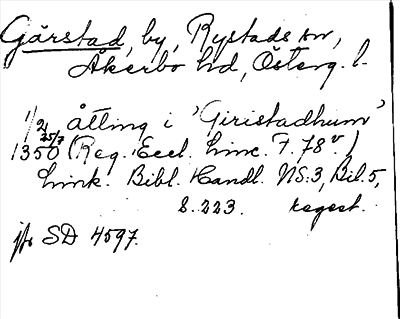 Gärstad, by, Rystads sn,
Åkerbo hd, Österg. l.
1/2 åtting i 'Giristadhum'
1350 25/7 (Reg. Eccl. Linc. F. 78 v.)
Link. Bibl. Handl. NS. 3, Bil. 5,
S. 223. regest.
jfr SD 4597.